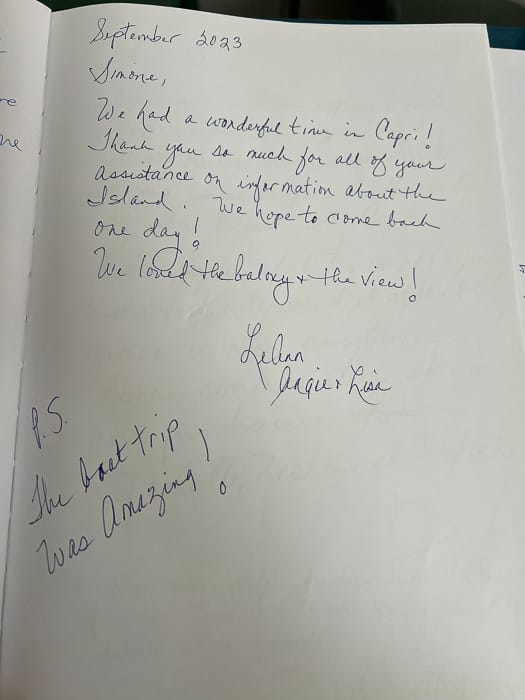 September 2023
Simone,
We had a wonderful time in Capri!
Thank you so much for all of your
assistance on information about the
Island. We hope to come back
one day!
We loved the balxy + the view!
LeAnn
Angie + Lisa
P.S.
The boat trip
was Amazing!
re
ne